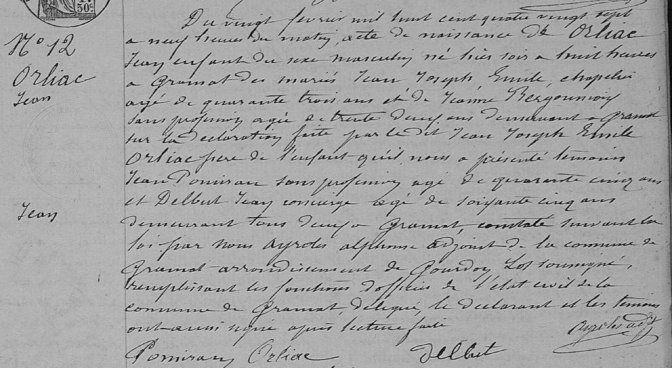 Du vingt fevrier mil huit cent quatre vingt sept
No 12
a neuf heures du matin, acte de naissance de Orliac
Orliac
Jean
Jean, enfant du sexe masculin né hier soir a huit heures
a Gramat des mariés Jean Joseph Emile, chapelier
agé de quarante trois ans et de Jeanne Bergounioux
sans profession agée de trente deux ans demeurant a Gramat
sur la declaration faite par le dit Jean Joseph Emile
Orliac pere de l'enfant qu'il nous a présenté temoins
Jean Pomiran sans profession agé de quarante cinq ans
Jean
et Delbut Jean concierge agé de soixante cinq ans
demeurant tous deux a Gramat, constaté suivant la
loi par nous Ayroles alphonse adjoint de la commune de
Gramat arrondissement de Gourdon Lot soussigné,
remplissant les fonctions d'officier de l'état civil de la
commune de Gramat, délégué, le declarant et les temoins
ont aussi signé après lecture faite
Pomiran Orliac Delbut Ayroles adjt